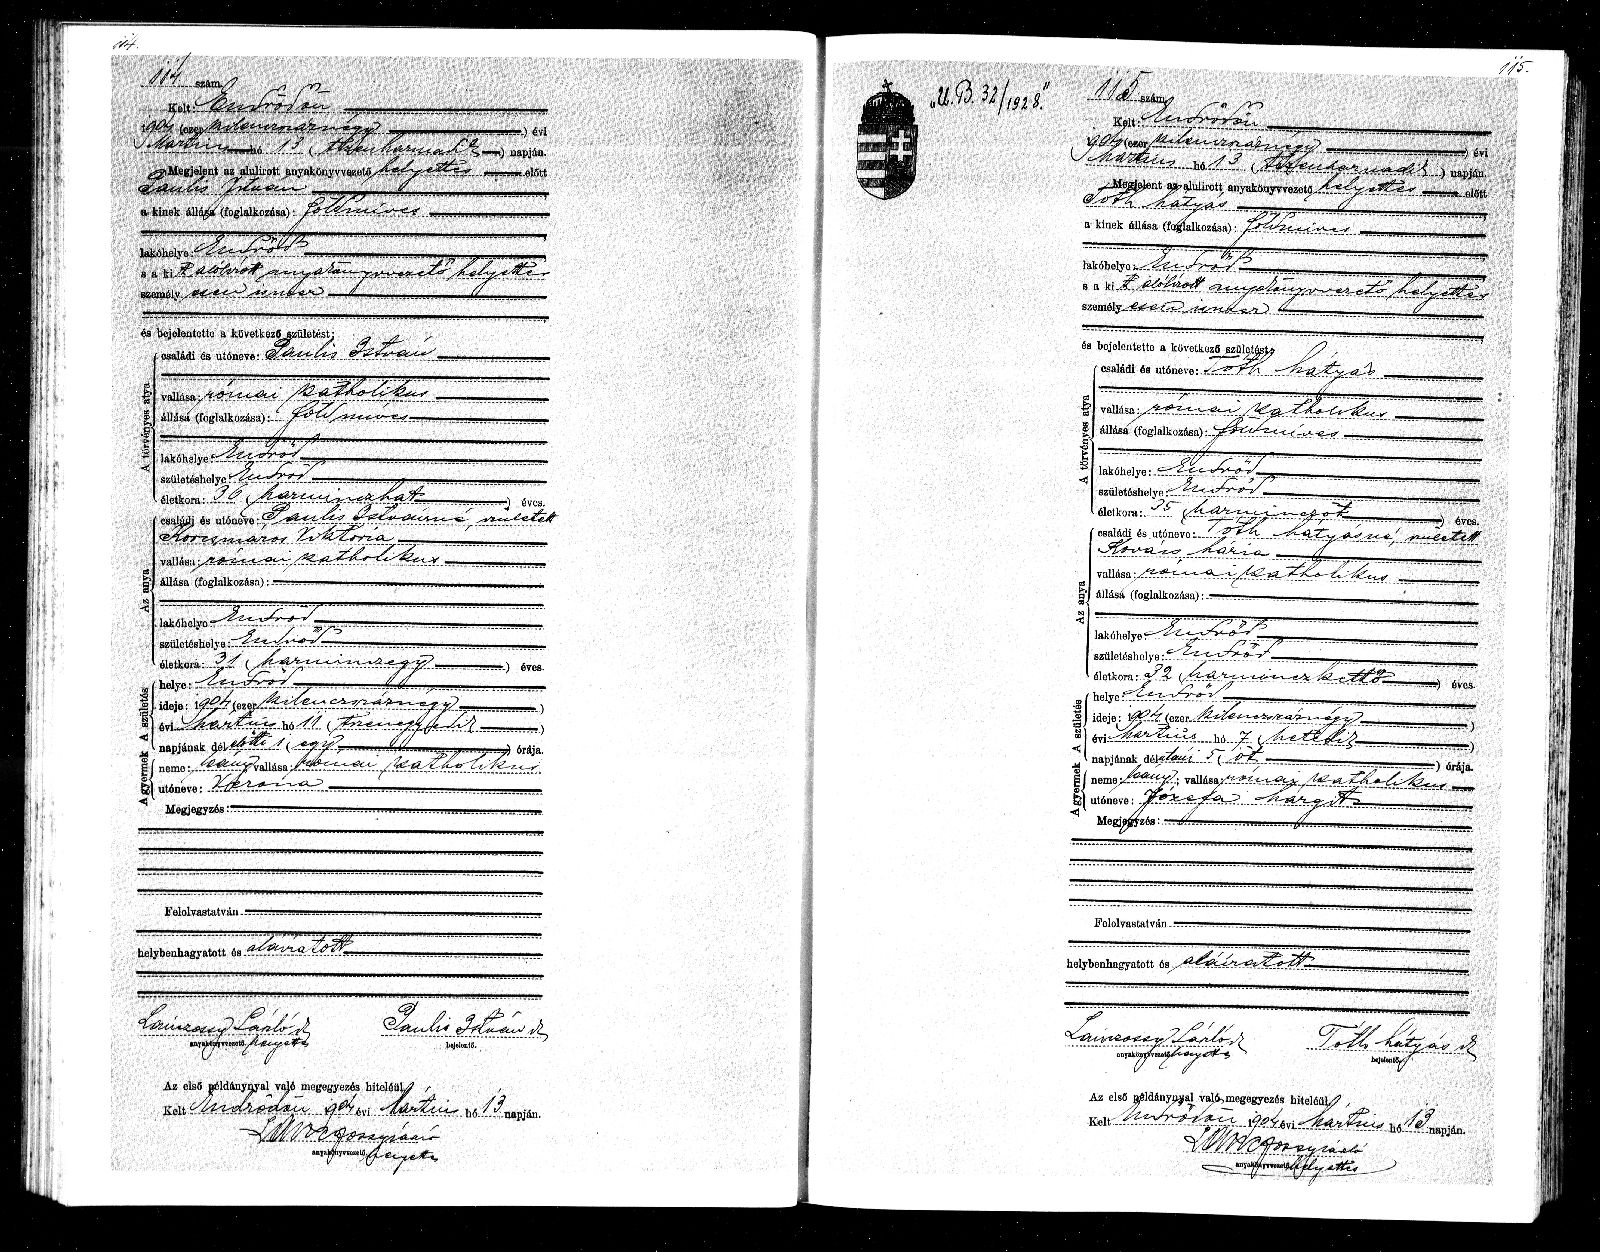 114.
114 szám.
Kelt: Endrődön
1904 (ezer kilenczszáznégy ) évi
Mártius hó 13 (tizenharmadik ) napján.
Megjelent az alulirott anyakönyvvezető helyettes előtt
Paulis István
a kinek állása (foglalkozása): földmíves
lakóhelye: Endrőd
s a kit alólirott anyakönyvvezető helyettes
személyesen ismer
és bejelentette a következő születést:
A törvényes atya
családi és utóneve: Paulis István
vallása: római katholikus
állása (foglalkozása): földmíves
lakóhelye: Endrőd
születéshelye: Endrőd
életkora: 36 (harminczhat ) éves.
Az anya
családi és utóneve: Paulis Istvánné, született
Korcsmáros Viktória
vallása: római katholikus
állása (foglalkozása):
lakóhelye: Endrőd
születéshelye: Endrőd
életkora: 31 (harminczegy ) éves.
A születés
helye: Endrőd
ideje: 1904 (ezer kilenczszáznégy )
évi Mártius hó 11 (tizenegyedik )
napjának délelőtti 1 (egy ) órája.
A gyermek
neme: leány; vallása: római katholikus
utóneve: Verona
Megjegyzés:
Felolvastatván
helybenhagyatott és aláiratott
László
anyakönyvvezető helyettes
Paulis István
bejelentő.
Az első példánynyal való megegyezés hiteléül.
Kelt Endrődön 1904 évi Mártius hó 13 napján.
anyakönyvvezető helyettes
115.
"U. B. 32/1928."
115 szám.
Kelt: Endrődön
1904 (ezer kilenczszáznégy ) évi
Mártius hó 13 (tizenharmadik ) napján.
Megjelent az alulirott anyakönyvvezető helyettes előtt
Tóth Mátyás
a kinek állása (foglalkozása): földmíves
lakóhelye: Endrőd
s a kit alólirott anyakönyvvezető helyettes
személyesen ismer
és bejelentette a következő születést:
A törvényes atya
családi és utóneve: Tóth Mátyás
vallása: római katholikus
állása (foglalkozása): földmíves
lakóhelye: Endrőd
születéshelye: Endrőd
életkora: 35 (harminczöt ) éves.
Az anya
családi és utóneve: Tóth Mátyásné, született
Kovács Mária
vallása: római katholikus
állása (foglalkozása):
lakóhelye: Endrőd
születéshelye: Endrőd
életkora: 32 (harminczkettő ) éves.
A születés
helye: Endrőd
ideje: 1904 (ezer kilenczszáznégy )
évi Mártius hó 7 (hetedik )
napjának délutáni 5 (öt ) órája.
A gyermek
neme: leány; vallása: római katholikus
utóneve: Józefa Margit
Megjegyzés:
Felolvastatván
helybenhagyatott és aláiratott
László
anyakönyvvezető helyettes
Tóth Mátyás
bejelentő.
Az első példánynyal való megegyezés hiteléül.
Kelt Endrődön 1904 évi Mártius hó 13 napján.
anyakönyvvezető helyettes